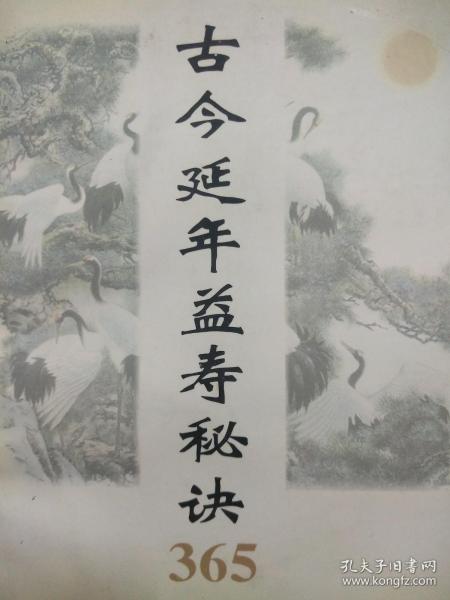 古今延年益寿秘诀
365
孔夫子旧书网
www.kongfz.com